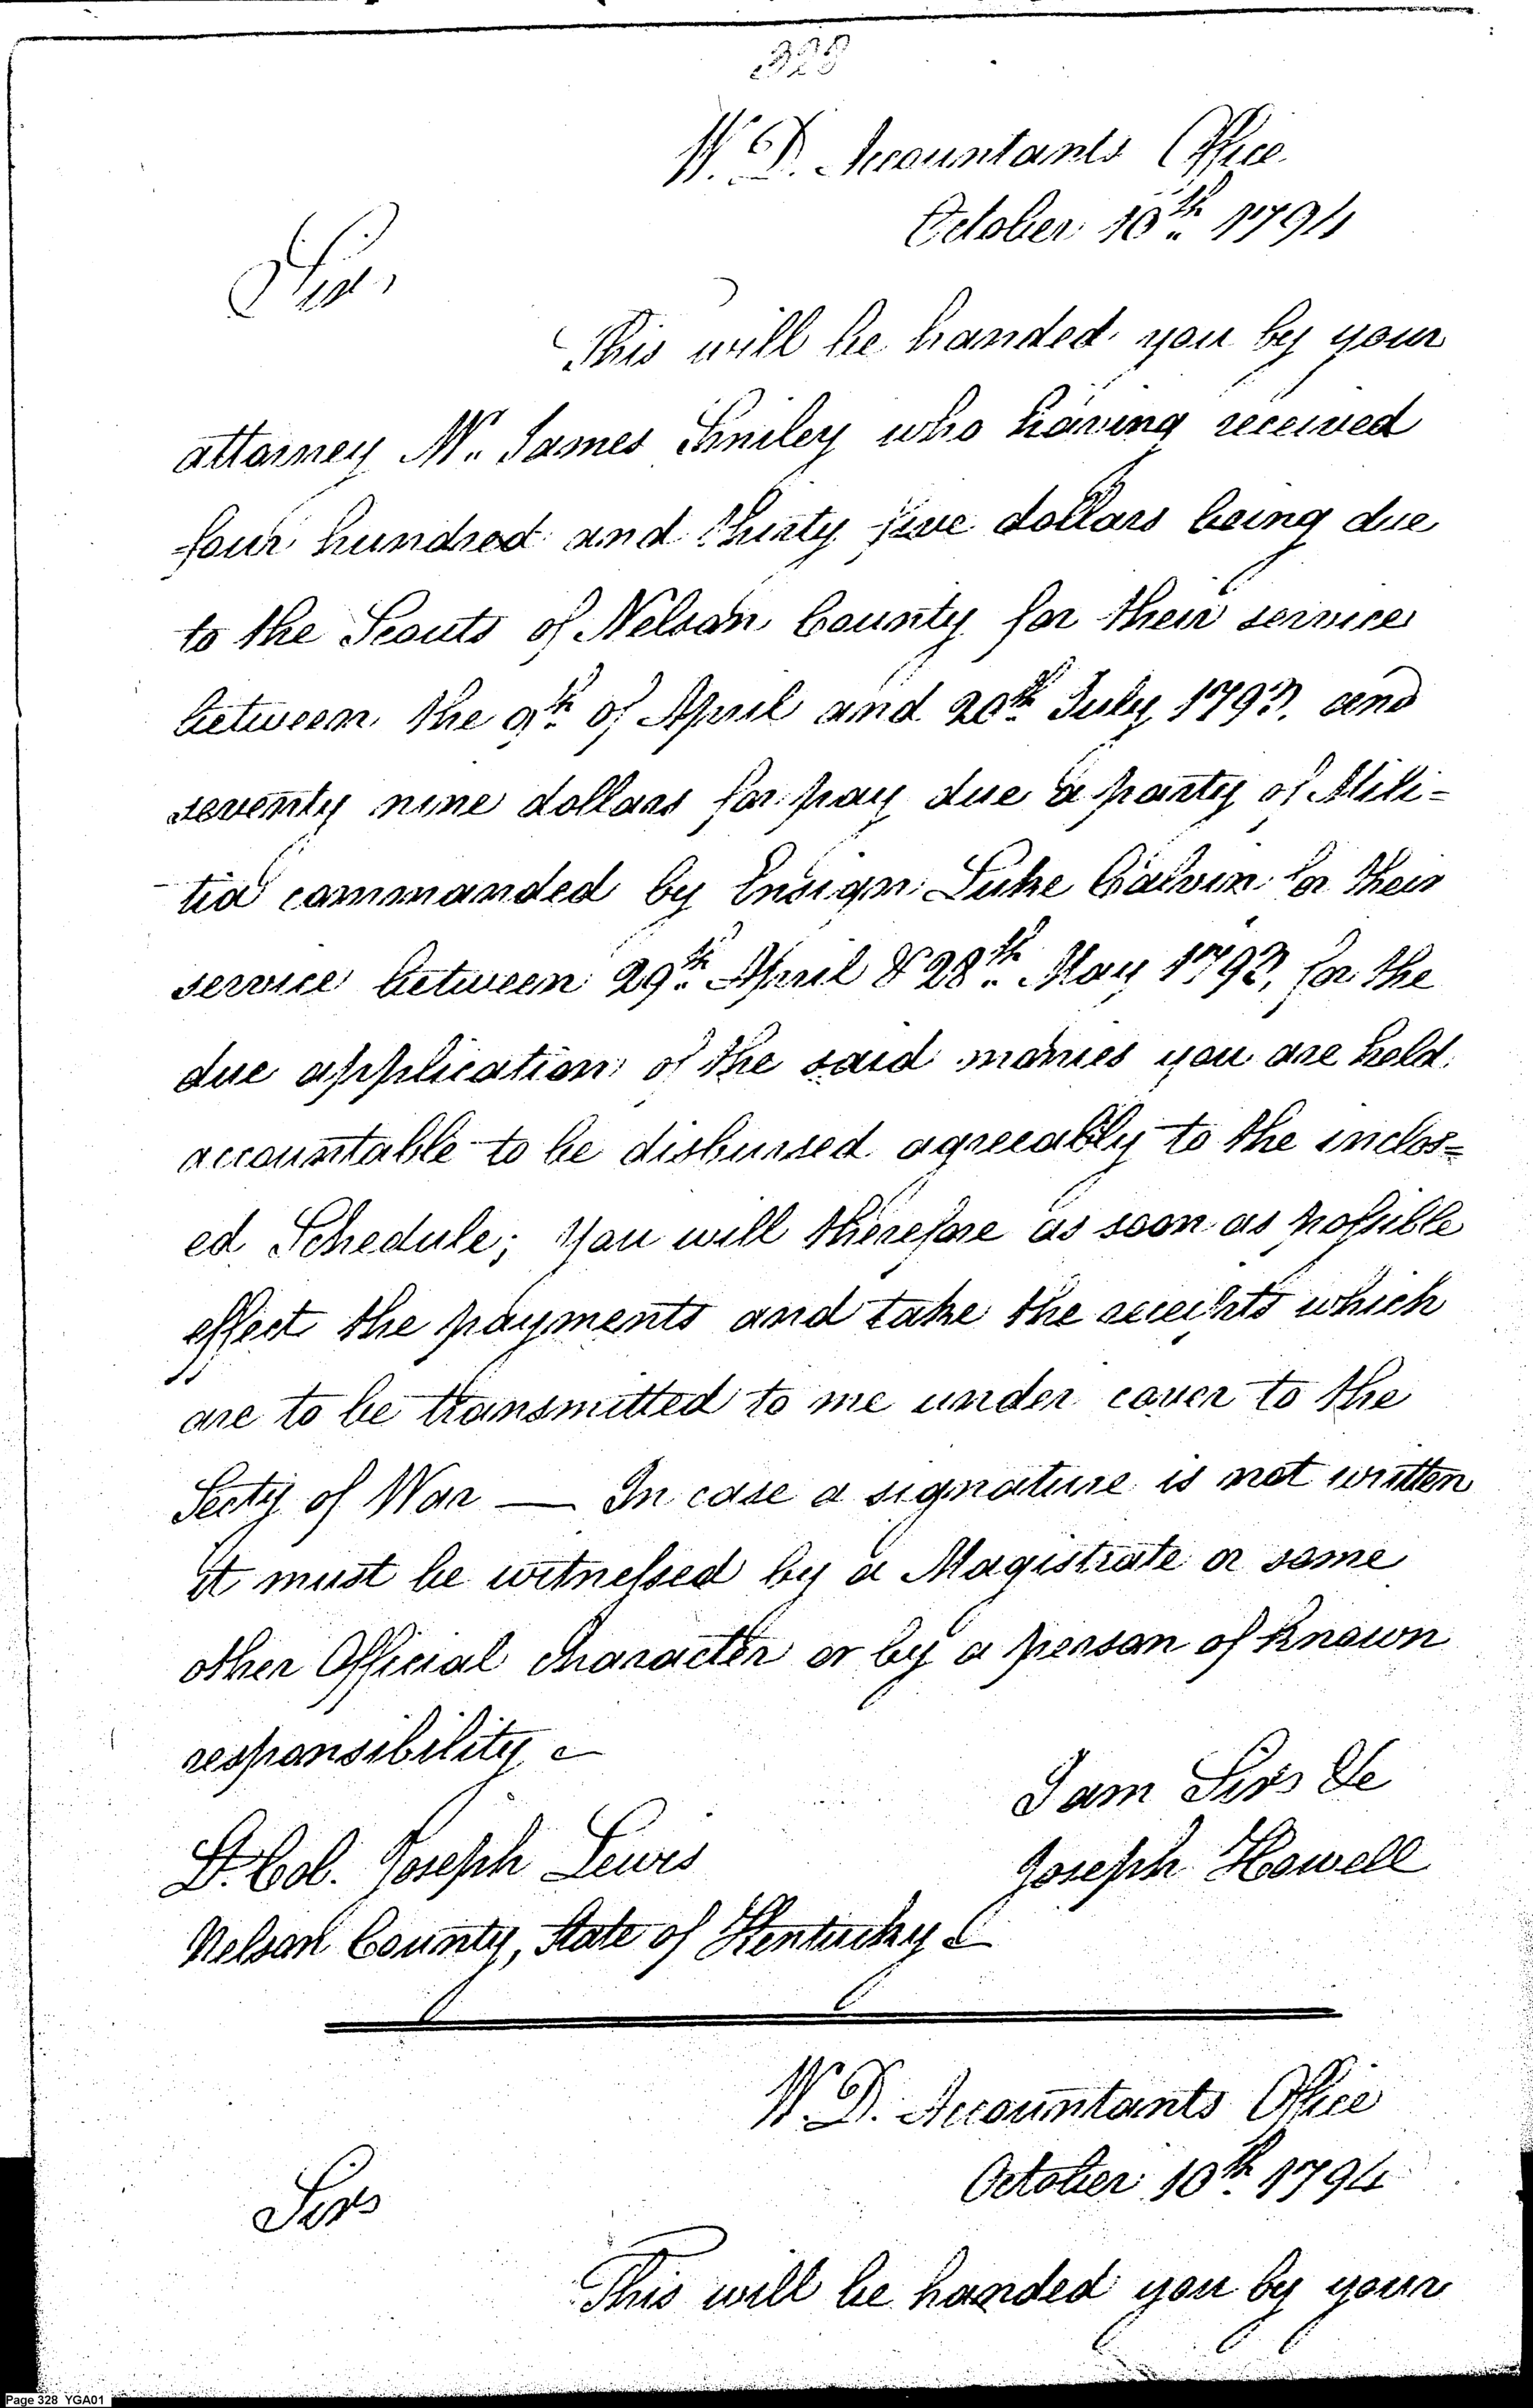 328
W. D. Accountants Office
October 10th 1794
Sir,
This will be handed you by your
attorney Mr. James Smiley who having received
four hundred and thirty five dollars being due
to the Scouts of Nelson County for their service
between the 9th of April and 20th July 1793, and
seventy nine dollars for pay due a party of Mili=
tia commanded by Ensign Luke Calvin for their
service between 29th April & 28th May 1793, for the
due application of the said monies you are held
accountable to be disbursed agreeably to the inclos=
ed Schedule; You will therefore as soon as possible
effect the payments and take the receipts which
are to be transmitted to me under cover to the
Secty of War — In case a signature is not written
it must be witnessed by a Magistrate or some
other Official character or by a person of known
responsibility
I am Sir &c
Lt. Col. Joseph Lewis
Joseph Howell
Nelson County, State of Kentucky
W. D. Accountants Office
October 10th 1794
Sir
This will be handed you by your
Page 328 YGA01